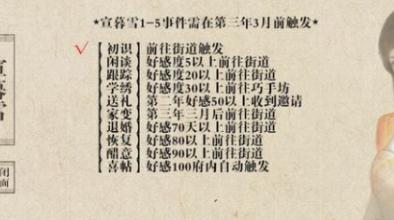 *宣暮雪1-5事件需在第三年3月前触发*
【初识】前往街道触发
【闲谈】好感度5以上前往街道
【跟踪】好感度20以上前往街道
【学绣】好感度30以上前往巧手坊
【送礼】第二年好感50以上收到邀请
【家变】第三年三月后前往街道
【退婚】好感70天以上前往街道
【恢复】好感80以上前往街道
【醋意】好感90以上前往街道
【喜帖】好感100府内自动触发
宣暮雪